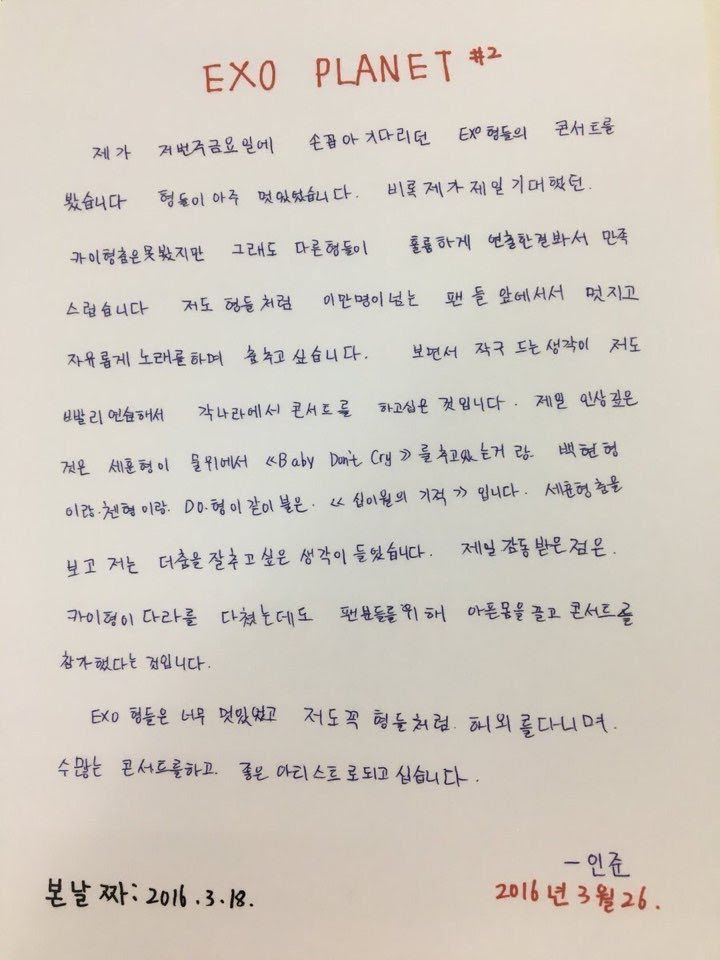 EXO PLANET #2
제가 저번주금요일에 손꼽아 기다리던 EXO형들의 콘서트를
봤습니다 형들이 아주 멋있었습니다. 비록 제가 제일 기대했던.
카이형춤은못봤지만 그래도 다른형들이 훌륭하게 연출한걸봐서 만족
스럽습니다 저도 형들처럼 이만명이넘는 팬들 앞에서서 멋지고
자유롭게 노래를하며 춤추고 싶습니다. 보면서 작구 드는생각이 저도
빨리연습해서 각나라에서 콘서트를 하고십은 것입니다. 제일 인상깊은
것은 세훈형이 물위에서 《Baby Don't Cry》를 추고있는거 랑. 백현형
이랑.첸형이랑. D.O.형이같이불은. 《십이월의 기적》입니다. 세훈형춤을
보고 저는 더춤을잘추고싶은 생각이 들었습니다. 제일감동받은점은.
카이형이 다리를 다쳤는데도 팬분들를위해 아픈몸을 끌고 콘서트를
참가했다는 것입니다.
EXO 형들은 너무 멋있었고 저도꼭 형들처럼. 해외를다니며.
수많는 콘서트를하고. 좋은 아티스트로되고십습니다.
- 인준
본날짜: 2016.3.18.
2016년3월26.